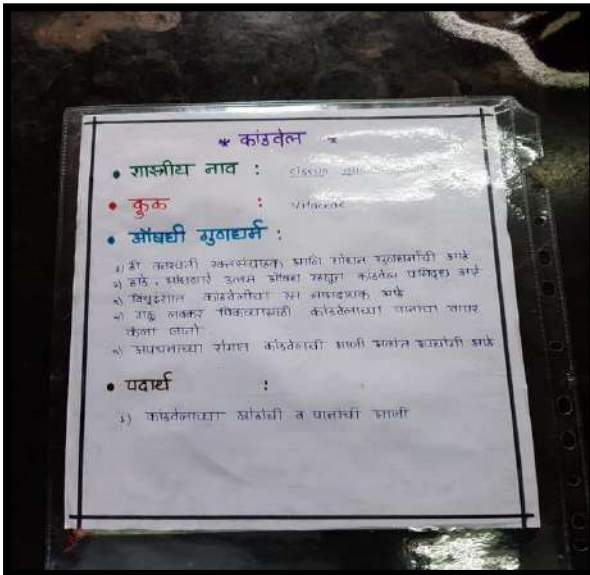 * कांडवेल *
• शास्त्रीय नाव : cissus
• कुळ : Vitaceae
• औषधी गुणधर्म :
१) ही वनस्पती रक्तसंग्राहक आणि गुणधर्माची आहे.
२) हाडे उत्तम औषध म्हणून कांडवेल प्रसिद्ध आहे
३) कांडवेलीचा रस लाभदायक आहे
४) गळू लवकर पिकण्यासाठी कांडवेलाच्या पानांचा वापर
केला जातो.
५) अपचनाच्या रोगात कांडवेलाची भाजी अत्यंत उपयोगी आहे
• पदार्थ :
१) कांडवेलाच्या खोडांची व पानांची भाजी